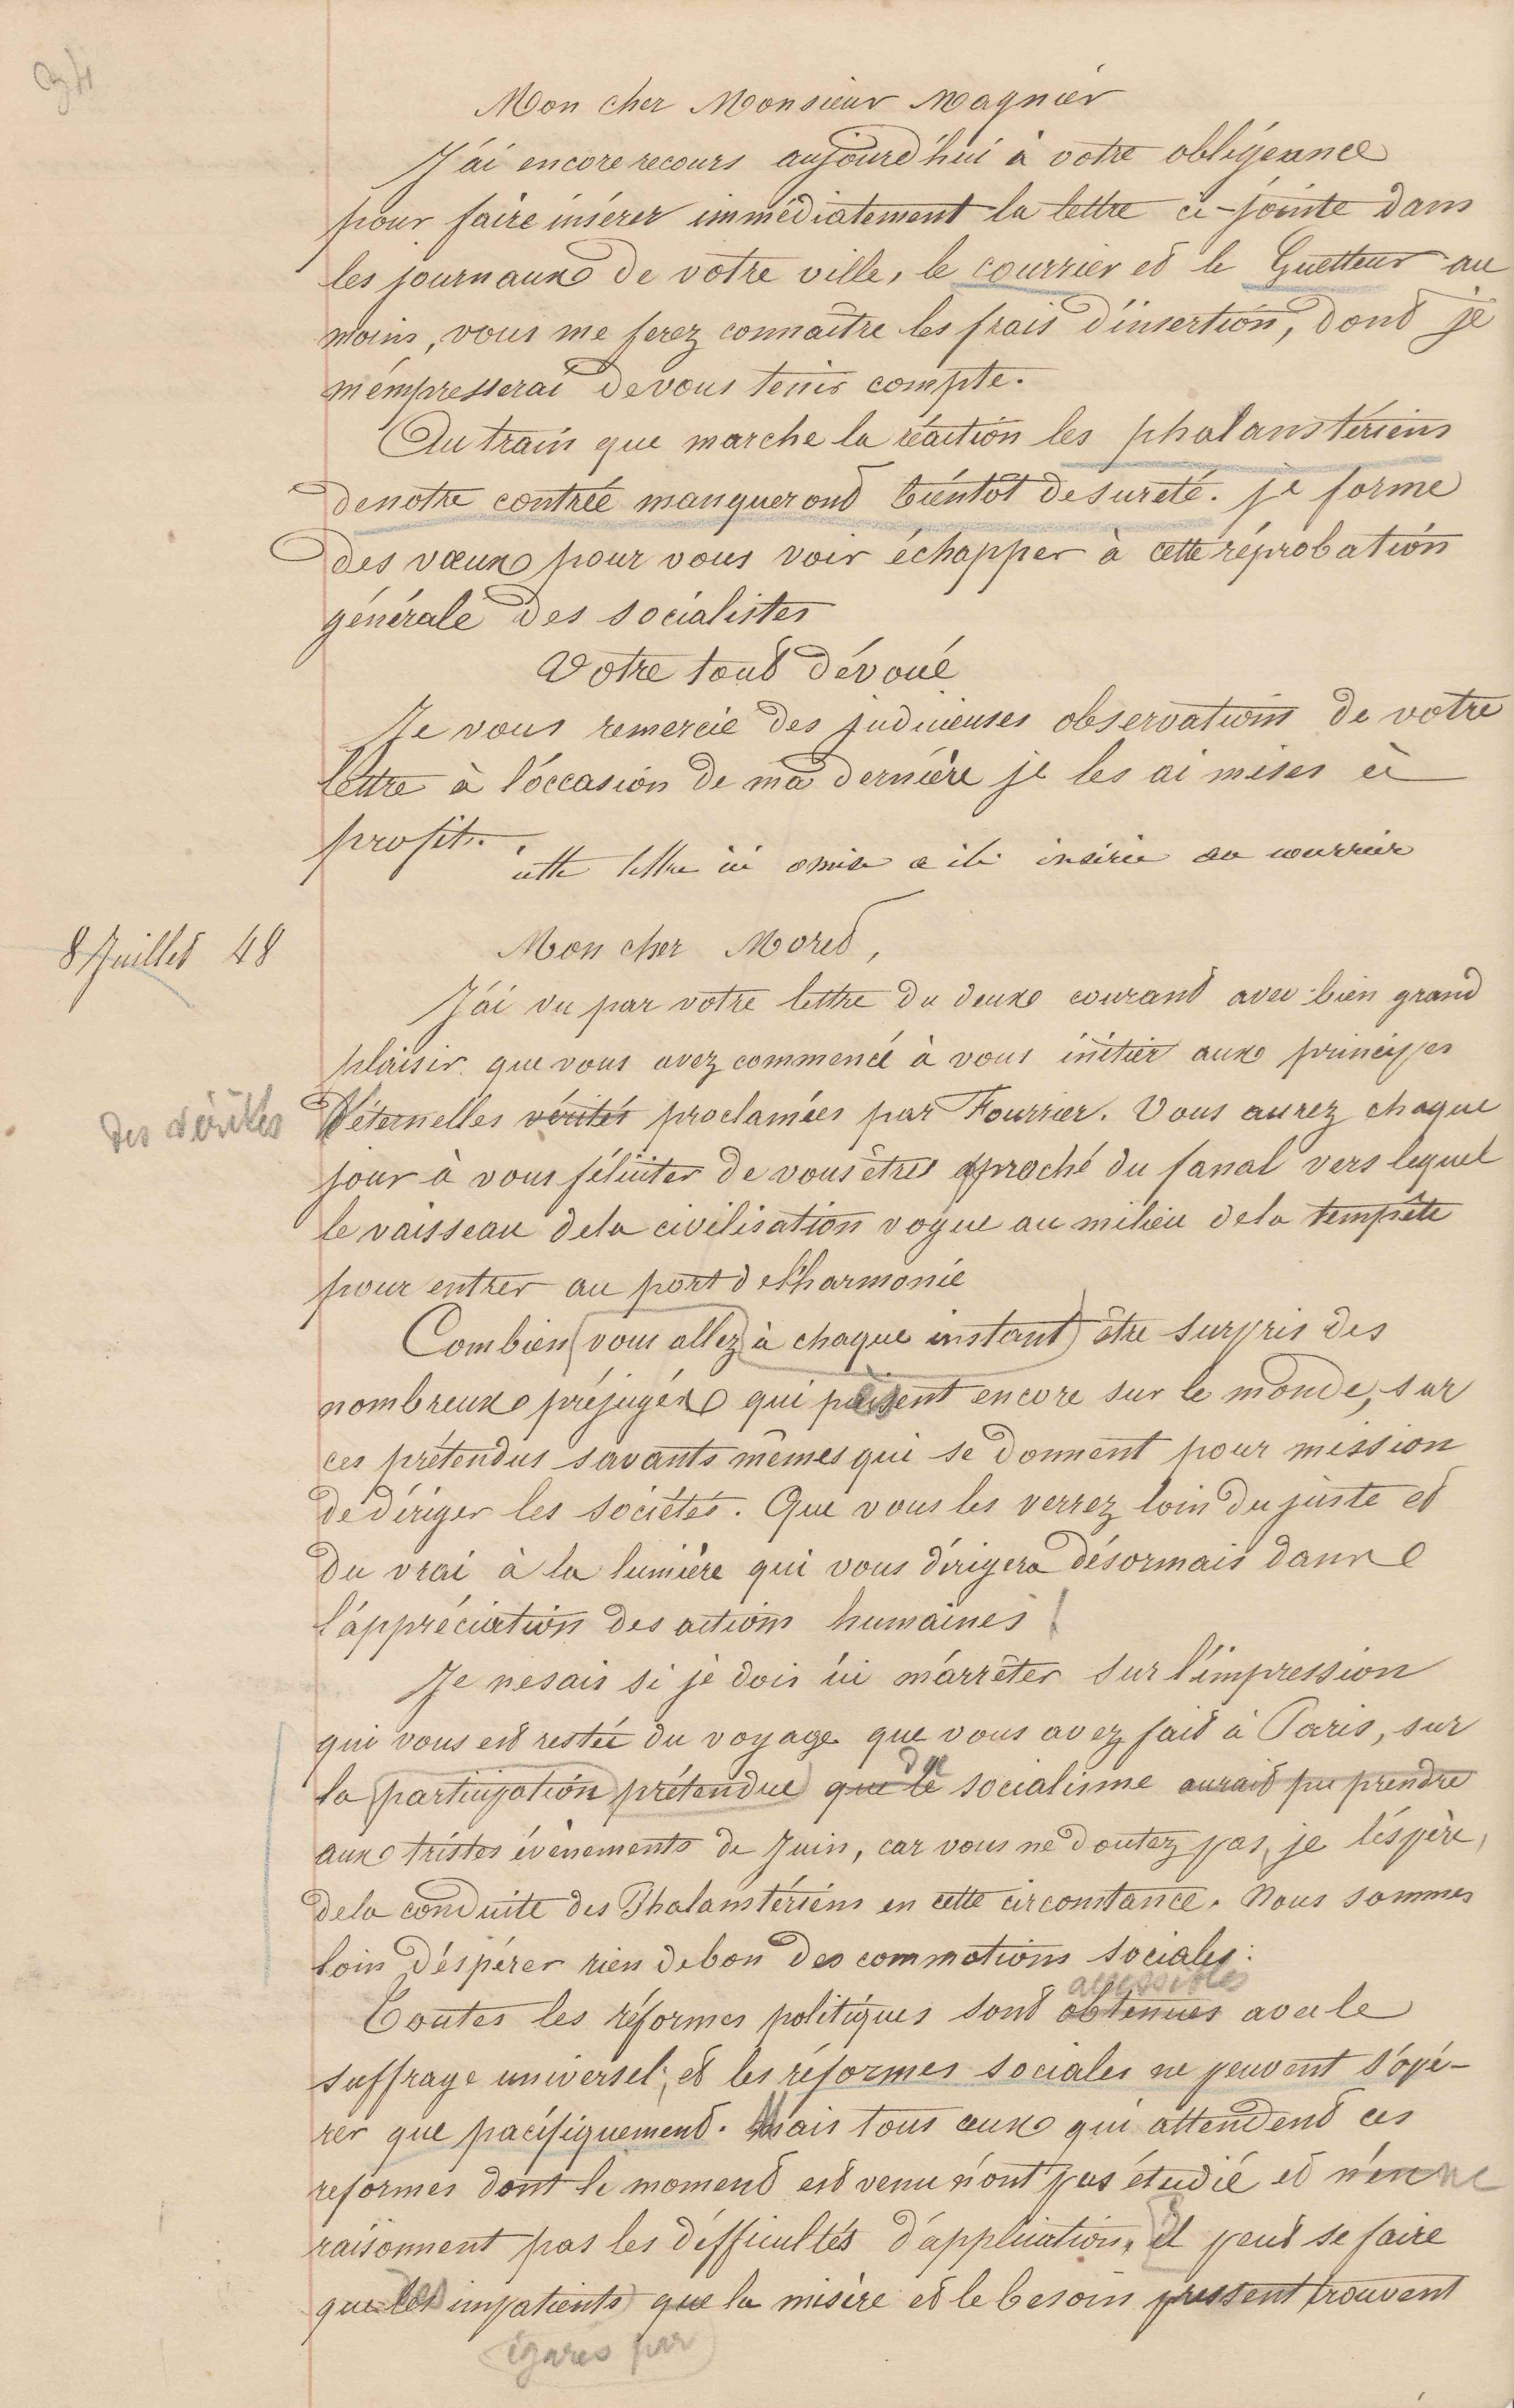 Mon cher Monsieur Magnier
J'ai encore recours aujourd'hui à votre obligeance
pour faire insérer immédiatement la lettre ci-jointe dans
les journaux de votre ville, le courrier et le Guetteur au
moins, vous me ferez connaitre les frais d'insertion, dont je
m'empresserai de vous tenir compte.
Au train que marche la réaction les phalanstériens
de notre contrée manqueront bientôt de sureté. je forme
des vœux pour vous voir échapper à cette réprobation
générale des socialistes
Votre tout dévoué
Je vous remercie des judicieuses observations de votre
lettre à l'occasion de ma dernière je les ai mises à
profit.
cette lettre ici omise a été insérée au courrier
8 Juillet 48
Mon cher Moret,
J'ai vu par votre lettre du deux courant avec bien grand
plaisir que vous avez commencé à vous initier aux principes
des vérités
d'éternelles vérités proclamées par Fourrier. Vous aurez chaque
jour à vous féliciter de vous être approché du fanal vers lequel
le vaisseau de la civilisation vogue au milieu de la tempête
pour entrer au port de l'harmonie
Combien vous allez à chaque instant être surpris des
nombreux préjugés qui pèsent encore sur le monde, sur
ces prétendus savants mêmes qui se donnent pour mission
de dériger les sociétés. Que vous les verrez loin du juste et
du vrai à la lumière qui vous dirigera désormais dans
l'appréciation des actions humaines !
Je ne sais si je dois ici m'arrêter sur l'impression
qui vous est restée du voyage que vous avez fait à Paris, sur
du
la participation prétendue que le socialisme aurait pu prendre
aux tristes évènements de Juin, car vous ne doutez pas, je l'espère,
de la conduite des Phalanstériens en cette circonstance. Nous sommes
loin d'espérer rien de bon des commotions sociales.
accessibles
Toutes les réformes politiques sont obtenues avec le
suffrage universel, et les réformes sociales ne peuvent s'opé-
rer que pacifiquement. Mais tous ceux qui attendent ces
reformes dont le moment est venu n'ont pas étudié et n'en ne
raisonnent pas les difficultés d'application, il peut se faire
que les impatients que la misère et le besoin pressent trouvent
égarés par